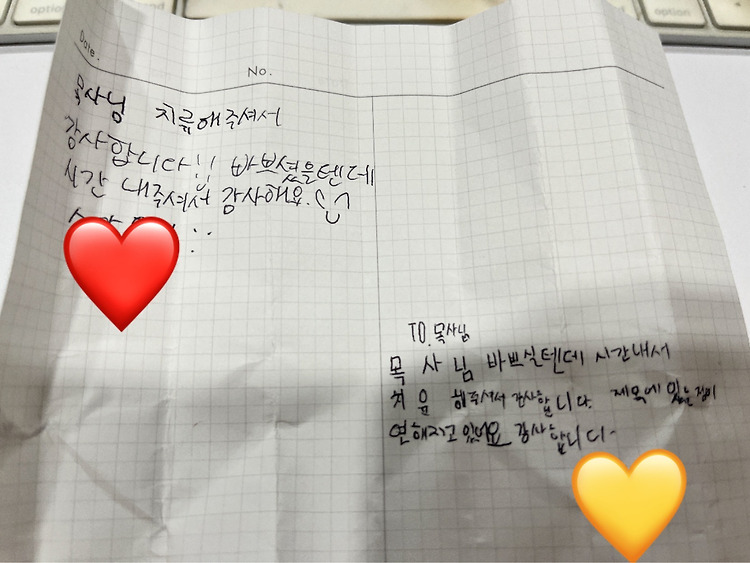 option
option
Date.
No.
목사님 치류해주셔서
감사합니다!! 바쁘셨을텐데
시간 내주셔서 감사해요.
TO. 목사님
목사님 바쁘실텐데 시간내서
치유 해주셔서 감사합니다. 제 목에 있는 점이
연해지고 있어요 감사합니다~